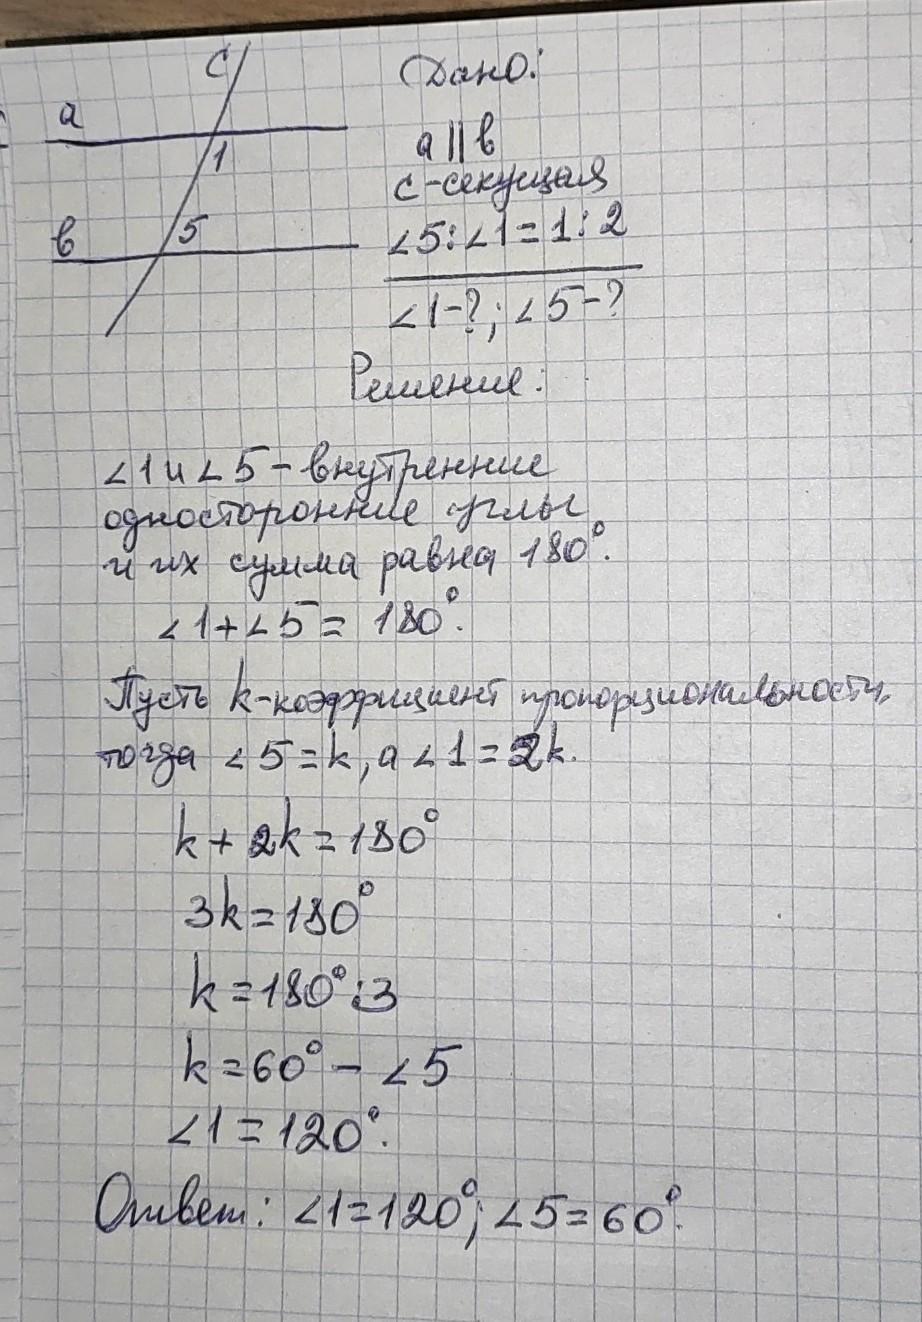 c
Дано:
a
a || b
1
c-секущая
b
5
∠5:∠1=1:2
∠1-?; ∠5-?
Решение:
∠1 и ∠5 - внутренние
односторонние углы
и их сумма равна 180°.
∠1+∠5 = 180°.
Пусть k-коэффициент пропорциональности,
тогда ∠5=k, а ∠1=2k.
k + 2k = 180°
3k = 180°
k = 180° : 3
k = 60° - ∠5
∠1 = 120°.
Ответ: ∠1=120°; ∠5=60°.